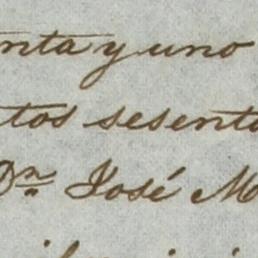 nta y uno
tos sesenta
Dn José M